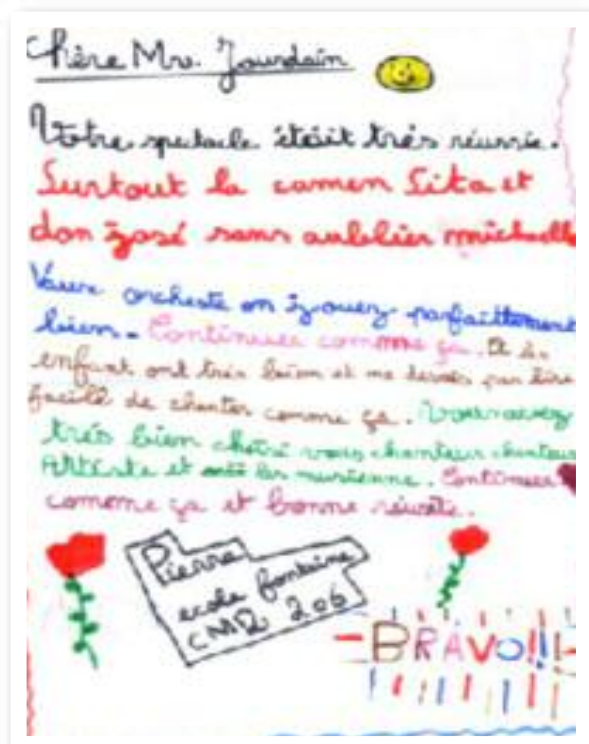 Chère Mr. Jourdain
Votre spectacle était très réussie.
Surtout la camen Sita et
don José sans oublier michaelle
orcheste on jouez parfaittement
bien. Continuez comme ça. Et
enfant ont très bien et me
facile de chanter comme ça.
très bien vous chanteur chanteur
Artiste et les musienne. Continuez
comme ça et bonne réusite.
Pierre
ecole fontaine
CM2 206
BRAVO!!!